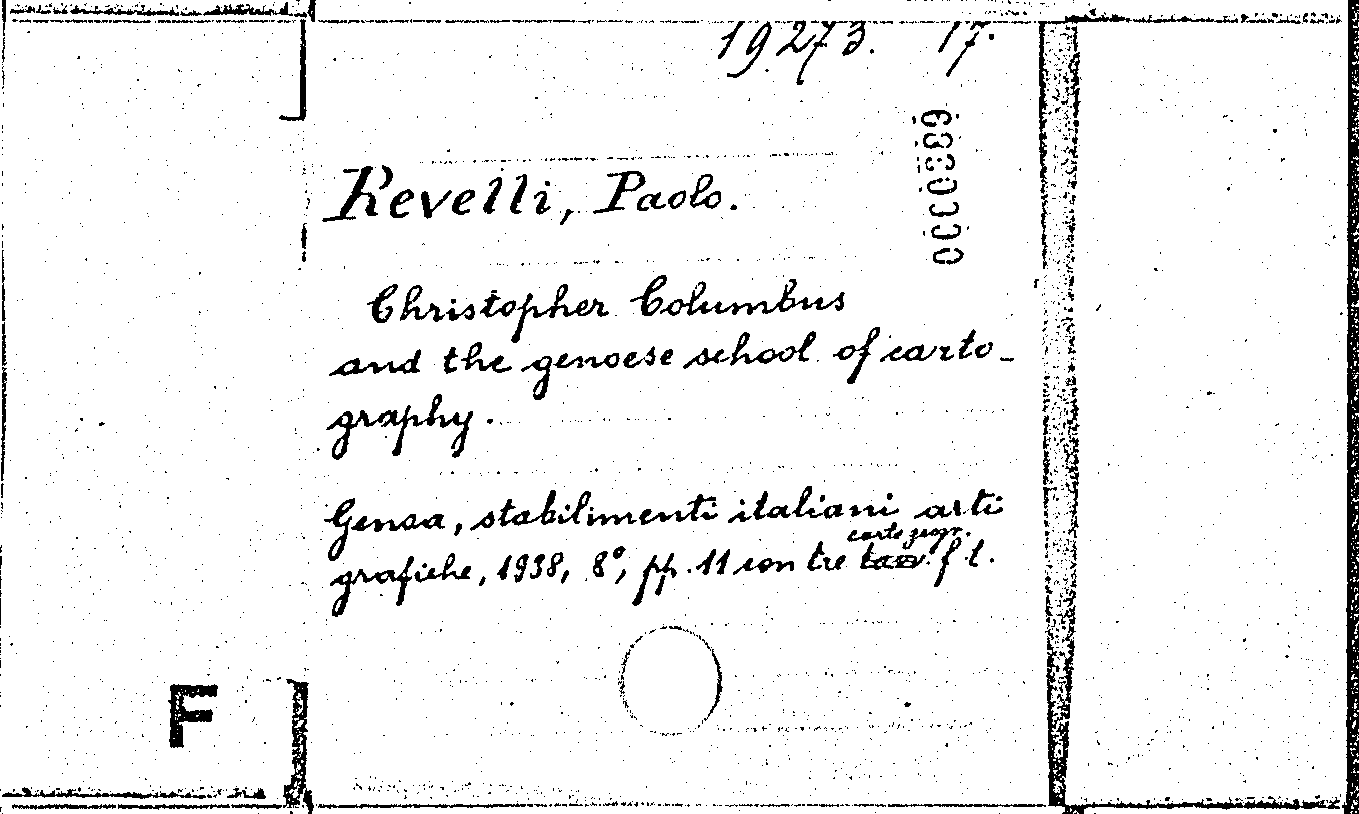 19273. 17.
0000389
Revelli, Paolo.
Christopher Columbus
and the genoese school of carto-
graphy.
Genoa, stabilimenti italiani arti
carte geogr.
grafiche, 1938, 8°, pp. 11 con tre f. t.
F